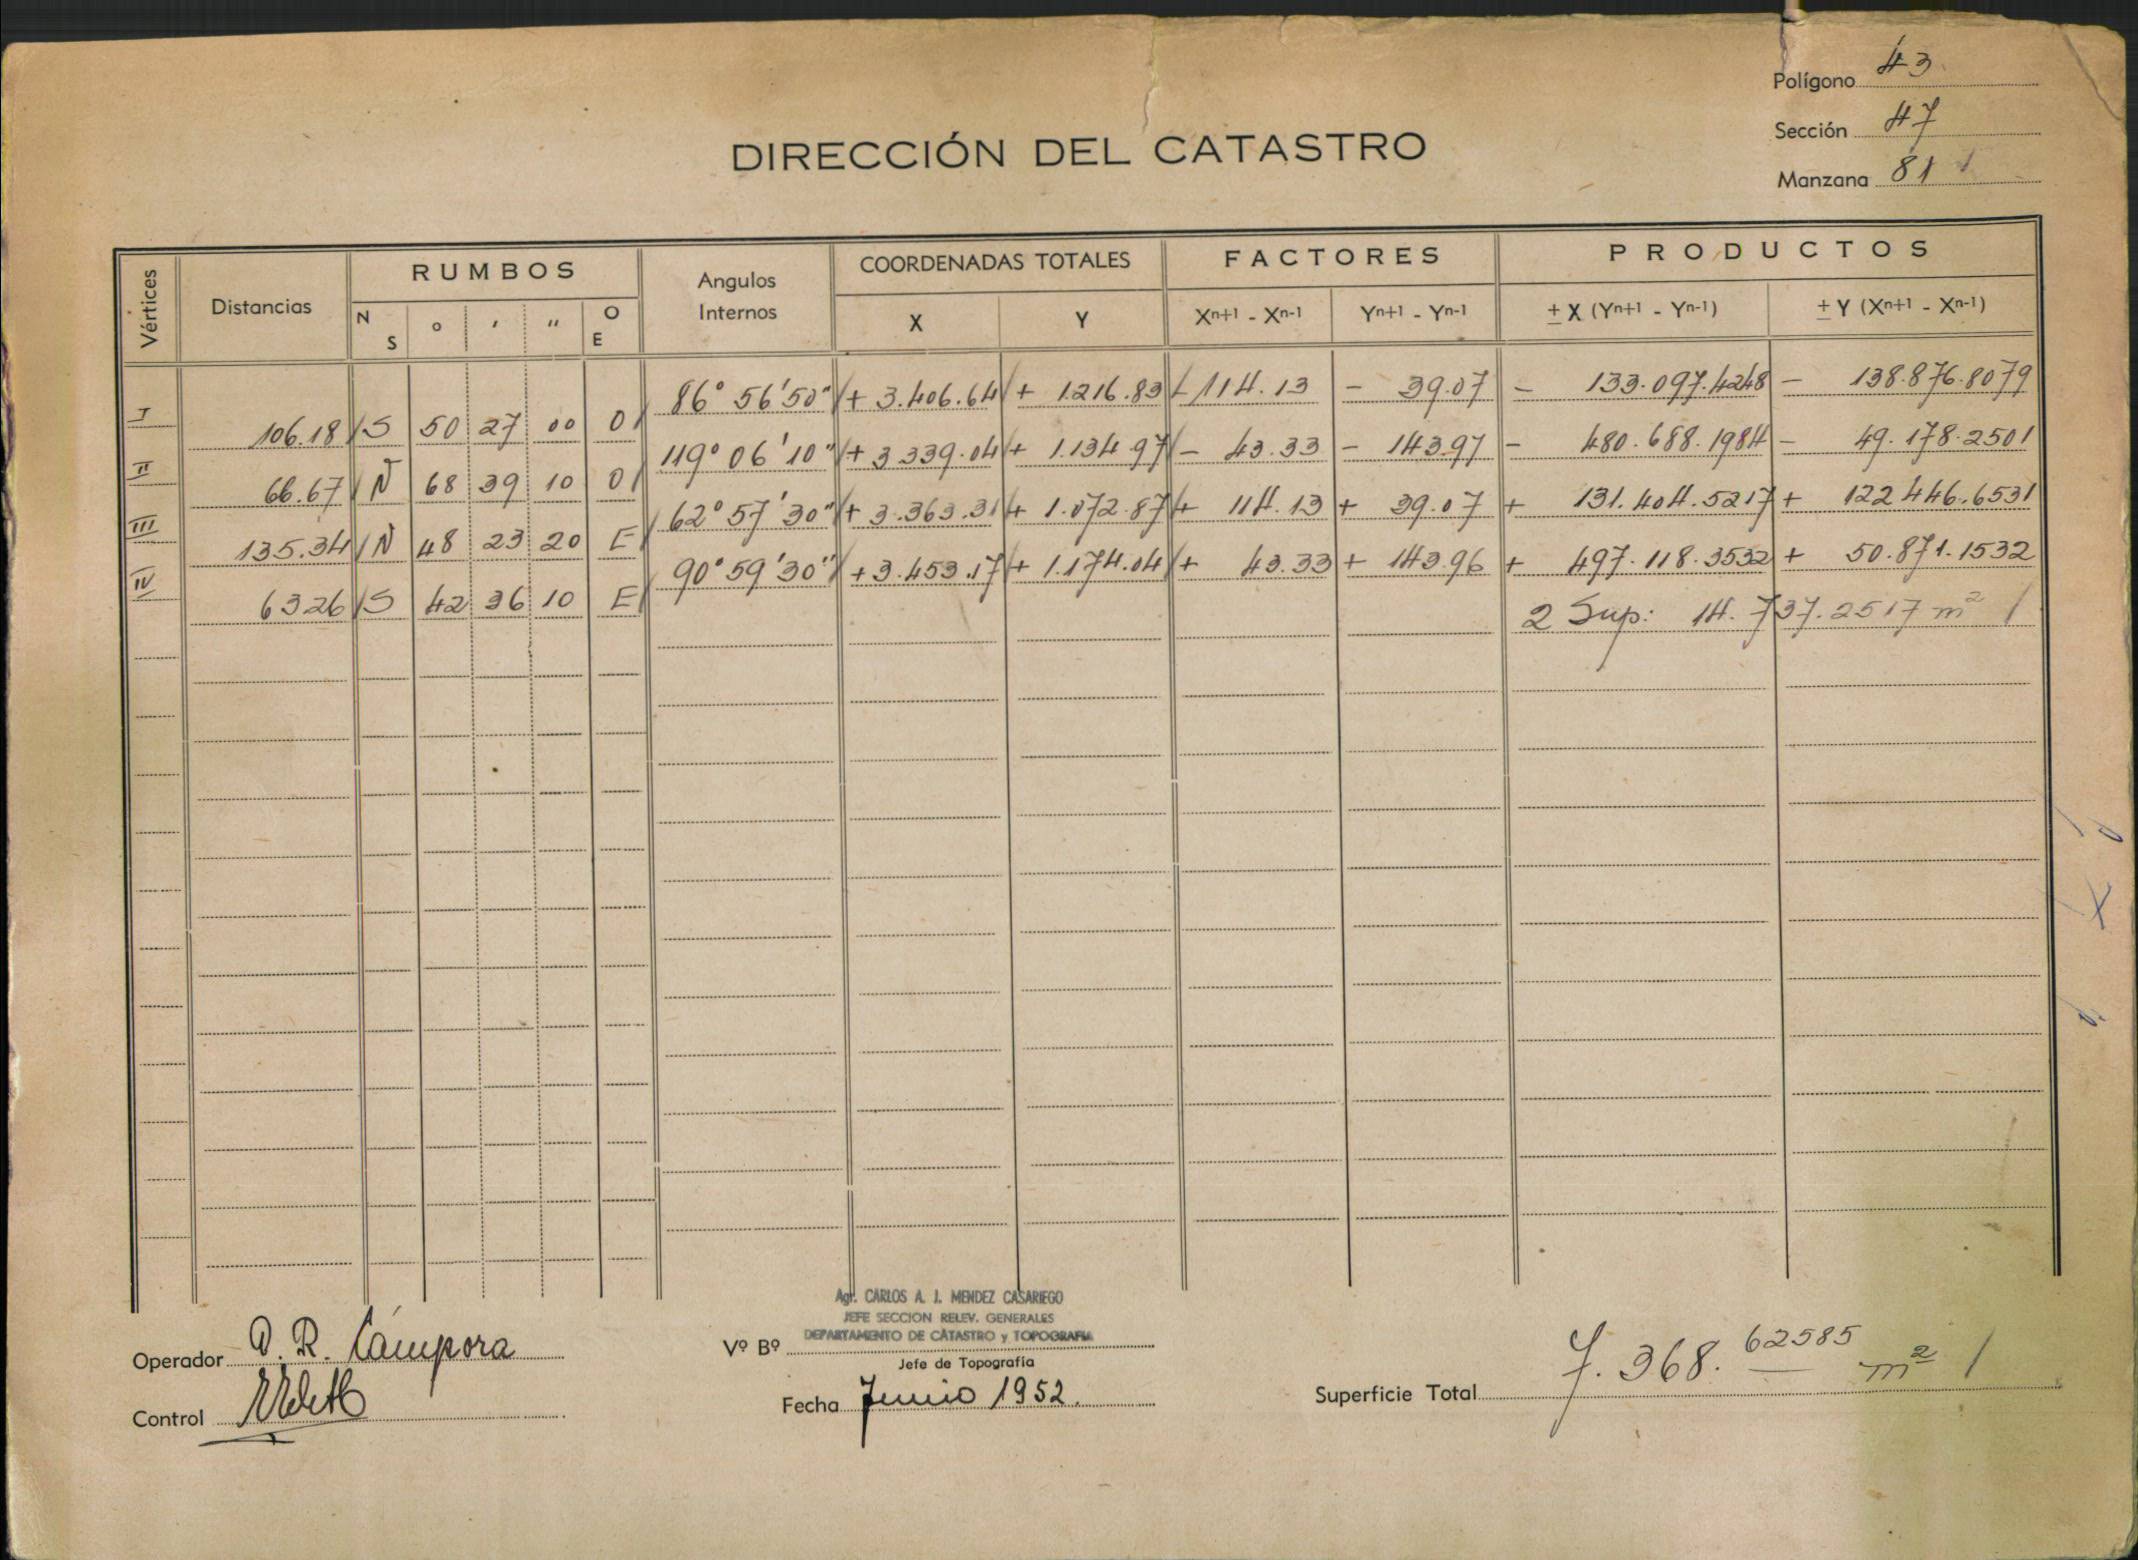 Polígono 43
Sección 47
Manzana 81
DIRECCIÓN DEL CATASTRO
Vértices Distancias RUMBOS Angulos Internos COORDENADAS TOTALES FACTORES PRODUCTOS
N S ° ' " O E X Y Xn+1 - Xn-1 Yn+1 - Yn-1 ± X (Yn+1 - Yn-1) ± Y (Xn+1 - Xn-1)
I 86° 56' 50" + 3.406.64 + 1.216.83 - 114.13 - 39.07 - 133.097.4248 - 138.876.8079
106.18 S 50 27 00 O
II 119° 06' 10" + 3.339.04 + 1.134.97 - 43.33 - 143.97 - 480.688.1984 - 49.178.2501
66.67 N 68 39 10 O
III 62° 57' 30" + 3.363.31 + 1.072.87 + 114.13 + 39.07 + 131.404.5217 + 122.446.6531
135.34 N 48 23 20 E
IV 90° 59' 30" + 3.453.17 + 1.174.04 + 43.33 + 143.96 + 497.118.3532 + 50.871.1532
63.26 S 42 36 10 E
2 Sup: 14.737.2517 m²
Agr. CARLOS A. J. MENDEZ CASARIEGO
JEFE SECCION RELEV. GENERALES
DEPARTAMENTO DE CATASTRO y TOPOGRAFIA
Operador O. R. Cámpora
Vº Bº
Jefe de Topografía
Superficie Total 7.368.62585 m²
Control
Fecha Junio 1952.